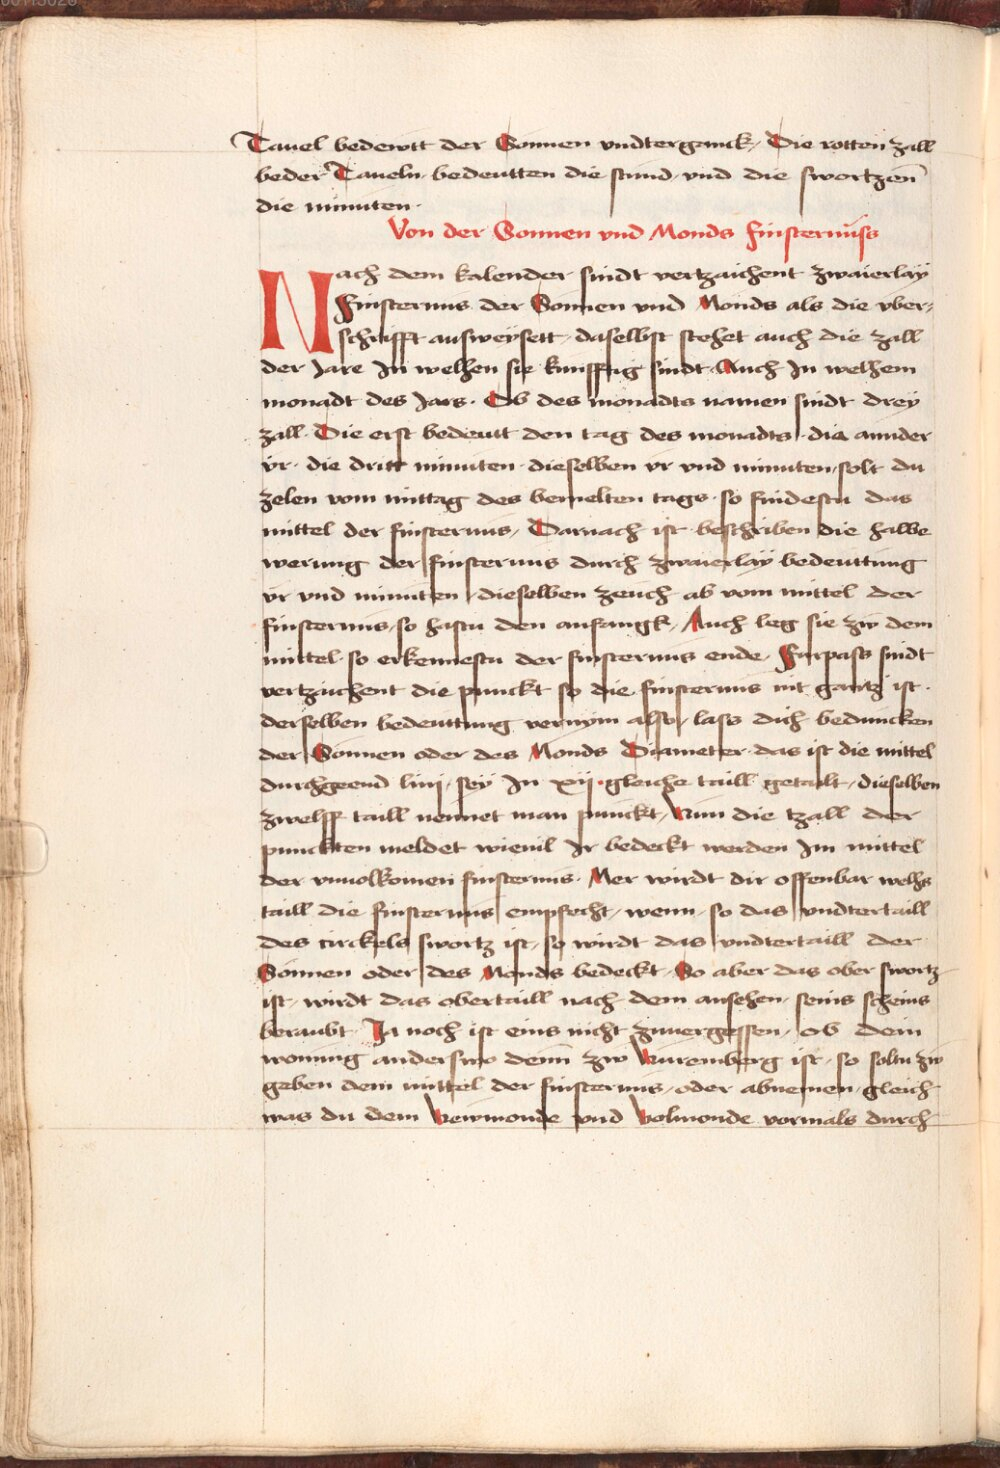 Tauel bedewtt der Sonnen vndtergannck, Die rotten zall
beder Taueln bedeutten die stund vnd die swortzen
die minuten.
Von der Sonnen vnd Monds finsternuss
Nach dem kalender sindt vertzaichent zwaierlay
Finsternus der Sonnen vnd Monds als die vber,
schrifft ausweysett daselbst stehet auch die zall
der Jare In welhen sie kunfftig sindt. Auch In welhem
monadt des Jars. Ob des monadts namen sindt drey
zall. Die erst bedeutt den tag des monadts die annder
vr. die dritt minuten dieselben vr vnd minuten solt du
zelen vom mittag des bemelten tags so findestu das
mittel der finsternus, Darnach ist beschriben die halbe
werung der finsternus durch zwaierlay bedeuttung
vr vnd minuten dieselben zeuch ab vom mittel der
finsternus so hastu den anfangk, Auch leg sie zw dem
mittel so erkennestu der finsternus ende, Furpass sindt
vertzaichent die punckt so die finsternus nit gantz ist.
derselben bedeuttung vernym also, lass dich beduncken
der Sonnen oder des Monds Diameter das ist die mittel
durchgeend lini, sey In xij gleiche taill getailt, dieselben
zwelff taill nennet man punckt, Nun die tzall der
punckten meldet wieuil Ir bedeckt werden Im mittel
der vnuolkomen finsternus. Mer wirdt dir offenbar welhs
taill die finsternus empfecht, wenn so das vndtertaill
des circkels swortz ist, so wirdt das vndtertaill der
Sonnen oder des Monds bedeckt, So aber das ober swortz
ist, wirdt das obertaill nach dem ansehen seins scheins
beraubt. Ja noch ist eins nicht zuuergessen, ob dein
wonung anderswo denn zw Nuremberg ist, so soltu zw
geben dem mittel der finsternus, oder abnemen, gleich
was du dem Newmonde vnd Volmonde vormals durch